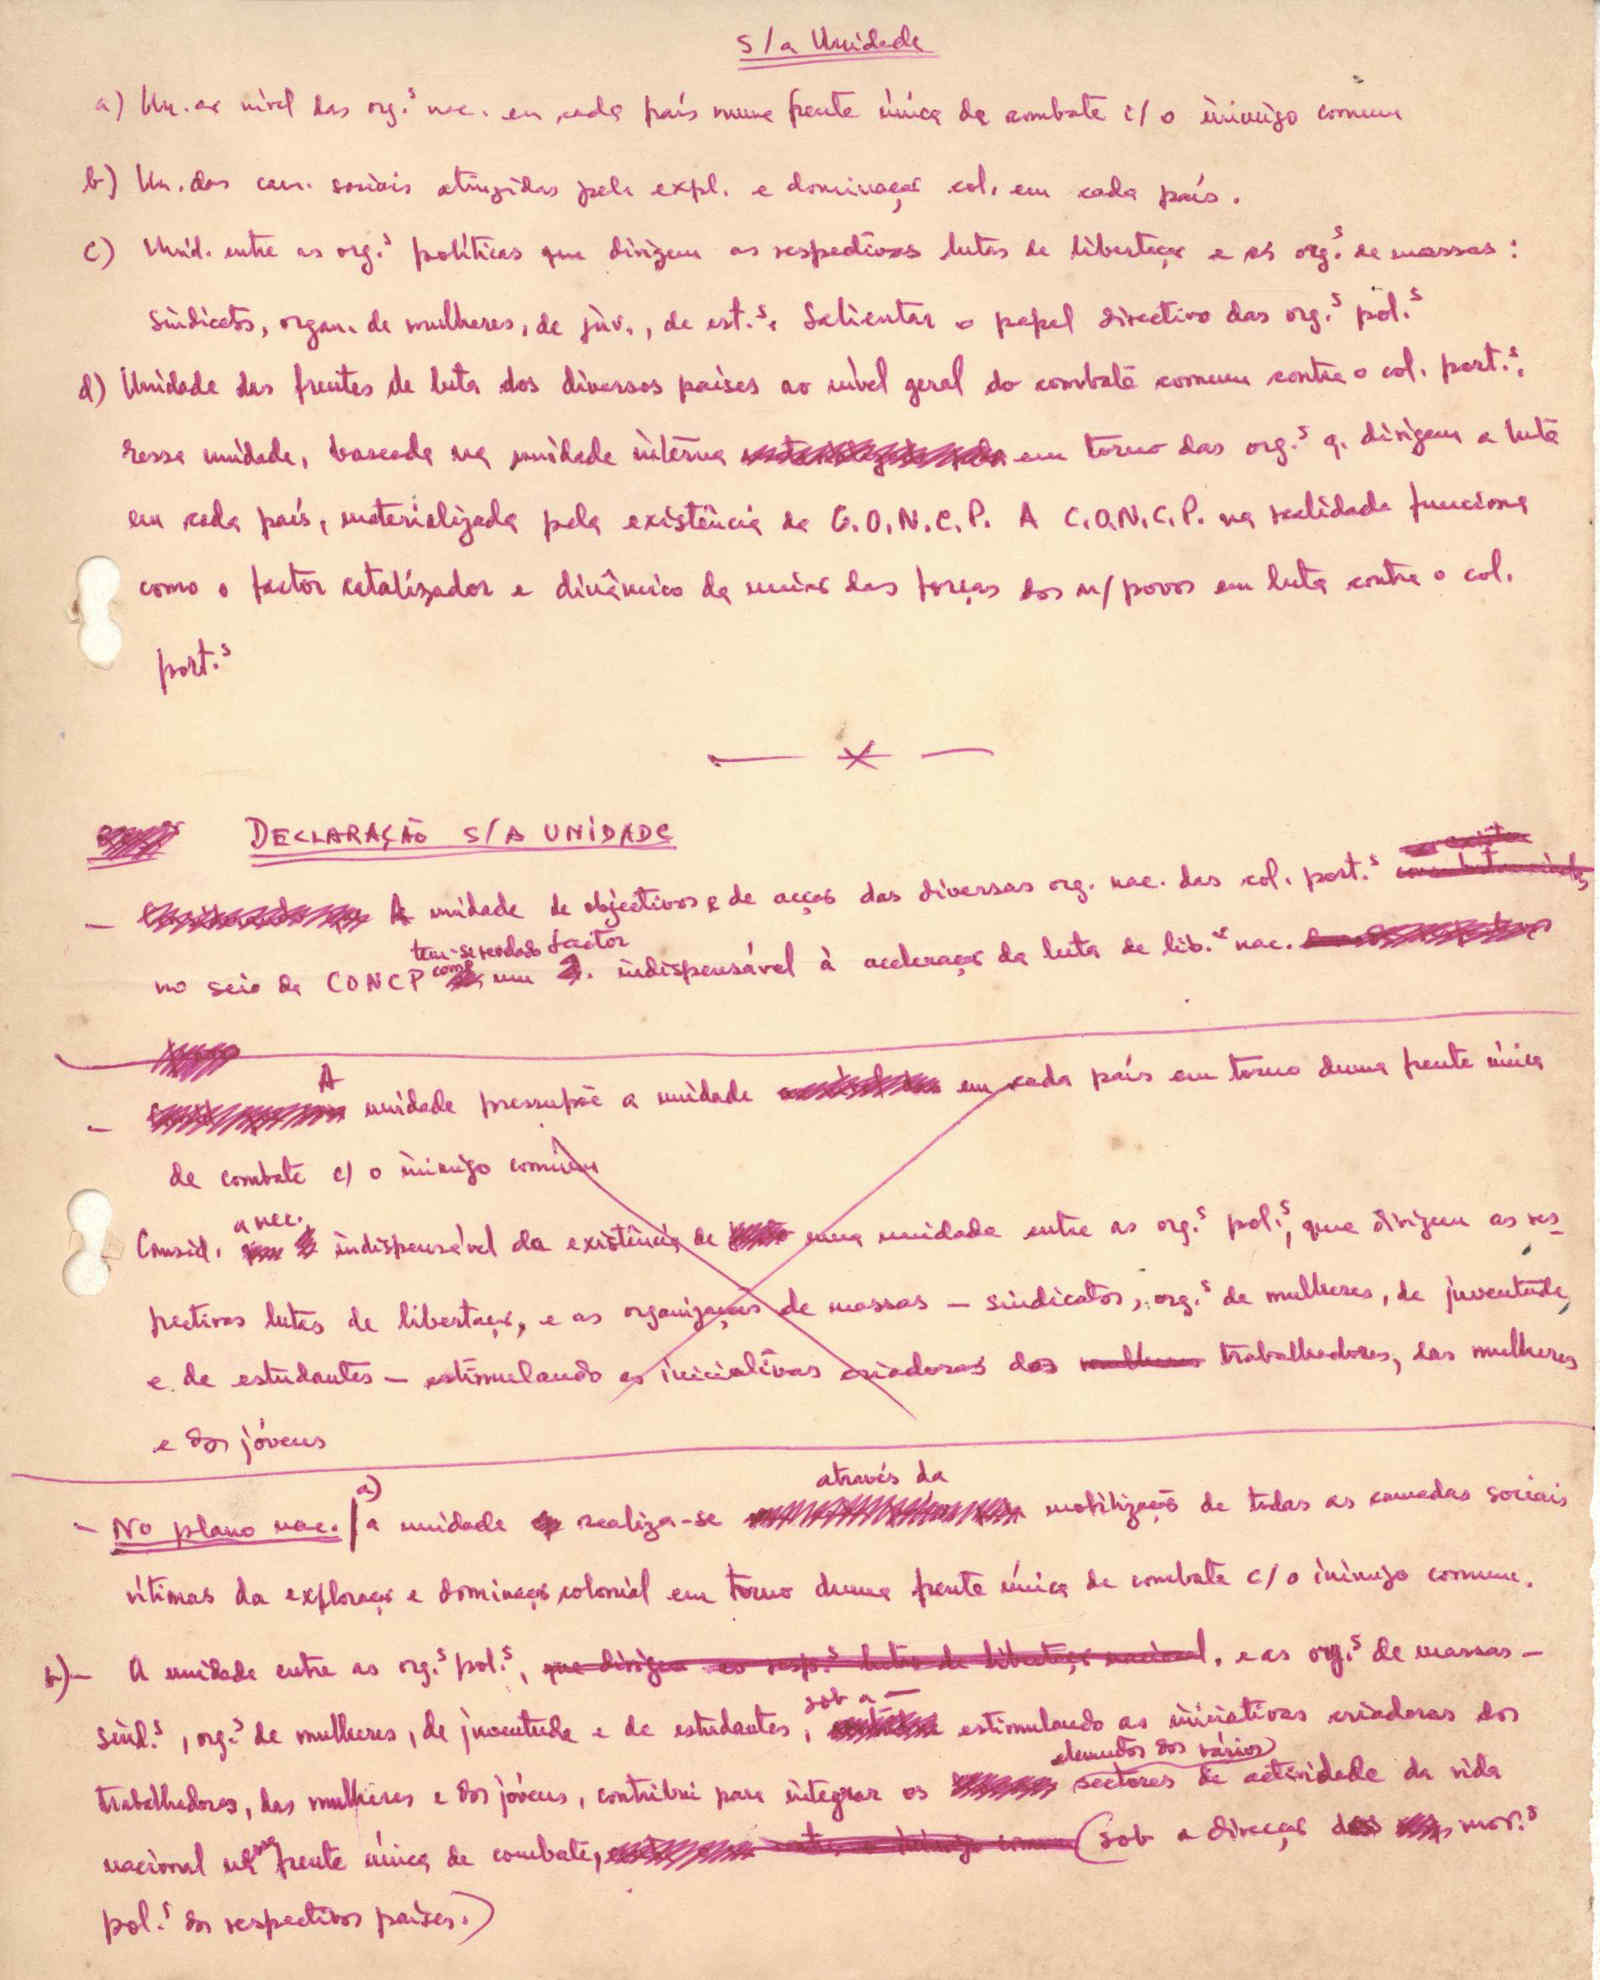 S/a Unidade
a) Un. ao nível das org.s nac. em cada país numa frente única de combate c/ o inimigo comum
b) Un. das cam. sociais atingidas pela expl. e dominação col. em cada país.
c) Unid. entre as org.s políticas que dirigem as respectivas lutas de libertação e as org.s de massas:
Sindicatos, organ. de mulheres, de juv., de est.s. Salientar o papel directivo das org.s pol.s
d) Unidade das frentes de luta dos diversos países ao nível geral do combate comum contra o col. port.s.
Essa unidade, baseada na unidade interna em torno das org.s q. dirigem a luta
em cada país, materializada pela existência da C.O.N.C.P. A C.O.N.C.P. na realidade funciona
como o factor catalizador e dinâmico da união das forças dos n/povos em luta contra o col.
port.s
— * —
DECLARAÇÃO S/A UNIDADE
— A unidade de objectivos e de acção das diversas org. nac. das col. port.s
tem-se revelado factor
no seio da CONCP como um indispensável à aceleração da luta de lib. nac.
A
— unidade pressupõe a unidade em cada país em torno duma frente única
de combate c/ o inimigo comum
a nec.
Consid. indispensável da existência de uma unidade entre as org.s pol.s, que dirigem as res-
pectivas lutas de libertação, e as organizações de massas — sindicatos, org.s de mulheres, de juventude,
e de estudantes — estimulando as iniciativas criadoras dos mulheres trabalhadores, das mulheres
e dos jóvens
a) através da
— No plano nac. | a unidade realiza-se mobilização de todas as camadas sociais
vítimas da exploração e dominação colonial em torno duma frente única de combate c/ o inimigo comum.
b) — A unidade entre as org.s pol.s, que dirigem as resp.s lutas de libertação nacional, e as org.s de massas —
sob a —
sind.s, org.s de mulheres, de juventude e de estudantes, estimulando as iniciativas criadoras dos
elementos dos vários
trabalhadores, das mulheres e dos jóvens, contribui para integrar os sectores de actividade da vida
nacional na frente única de combate, (sob a direcção dos mov.s
pol.s dos respectivos países.)